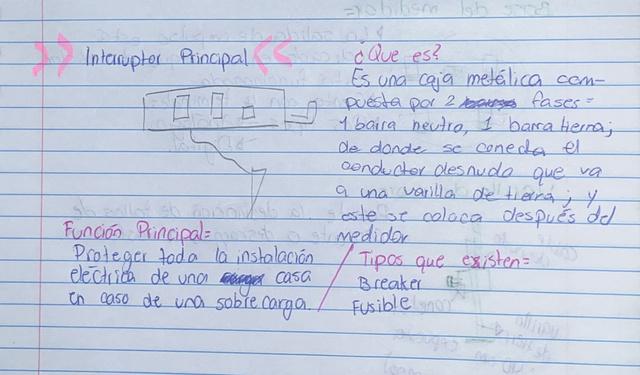 >> Interruptor Principal <<
¿Que es?
Es una caja metálica com-
puesta por 2 fases=
1 barra neutro, 1 barra tierra;
de donde se conecta el
conductor desnudo que va
a una varilla de tierra; y
este se coloca después del
medidor
Función Principal=
Proteger toda la instalación
eléctrica de una casa
en caso de una sobrecarga.
Tipos que existen=
Breaker
Fusible